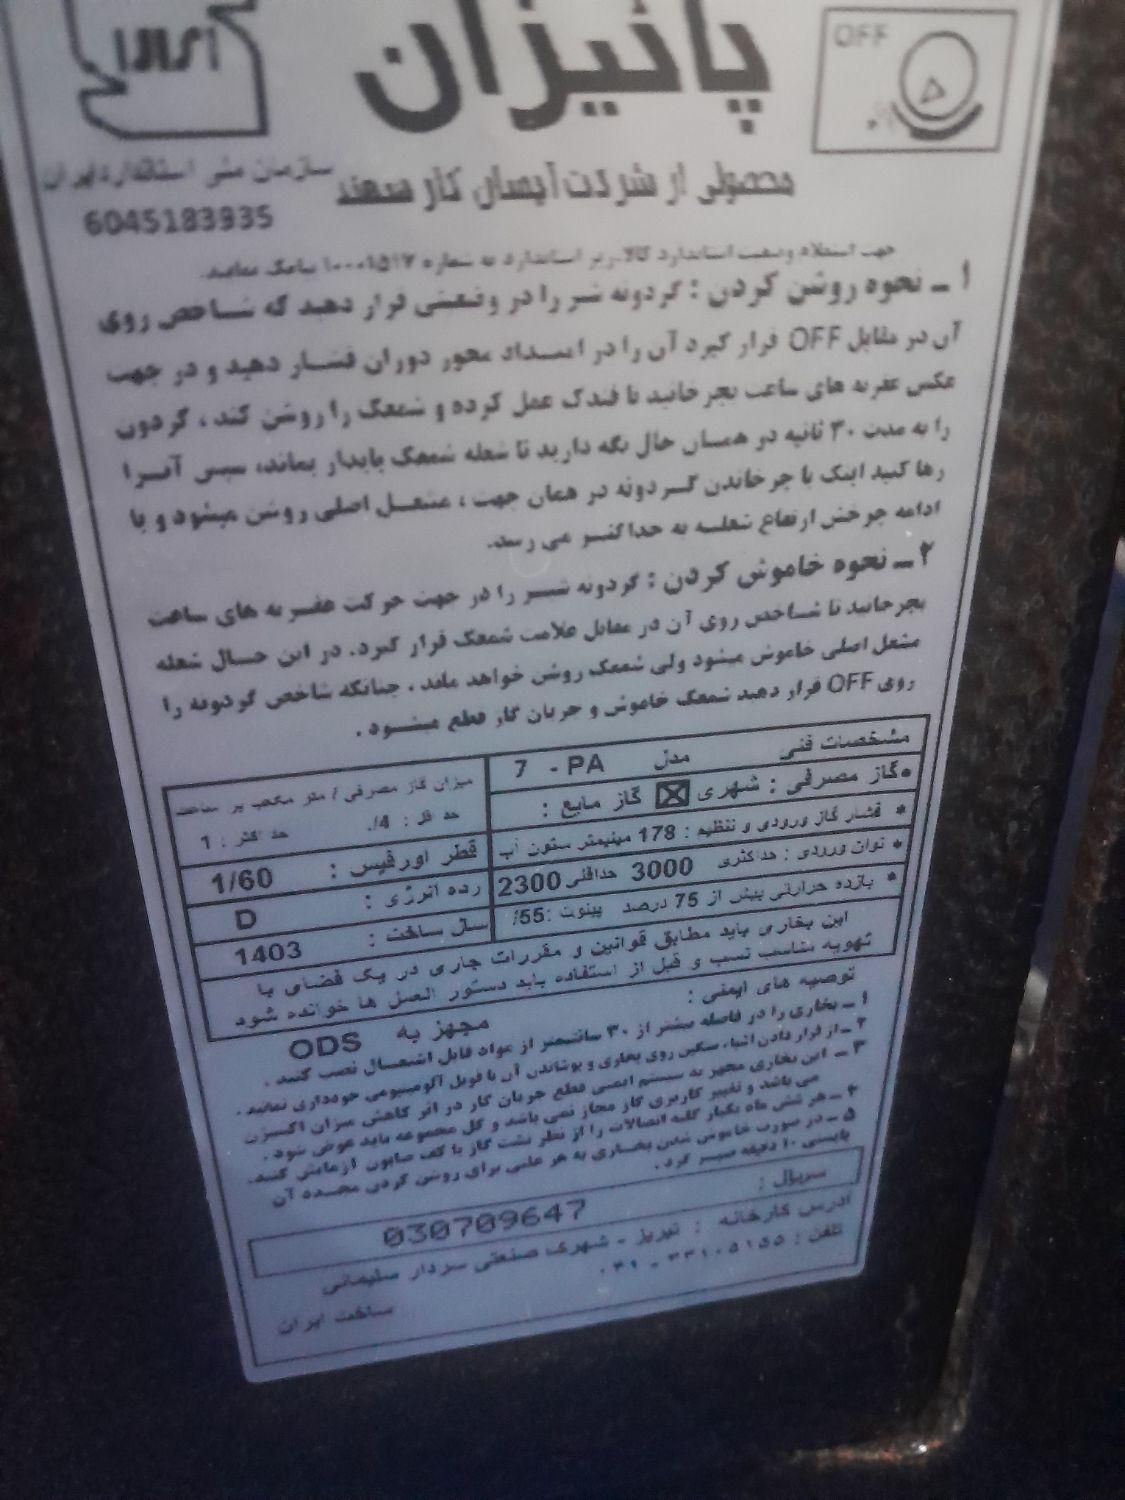 OFF
پائیزان
محصولی از شرکت آیسان کار سهند
سازمان ملی استاندارد ایران
6045183935
جهت استعلام وضعیت استاندارد کالا، زیر استاندارد به شماره ۱۰۰۰۱۵۱۷ پیامک نمایید.
۱ ـ نحوه روشن کردن : گردونه شیر را در وضعیتی قرار دهید که شاخص روی
آن در مقابل OFF قرار گیرد آن را در امتداد محور دوران فشار دهید و در جهت
عکس عقربه های ساعت بچرخانید تا فندک عمل کرده و شمعک را روشن کند ، گردون
را به مدت ۳۰ ثانیه در همان حال نگه دارید تا شعله شمعک پایدار بماند، سپس آنرا
رها کنید اینک با چرخاندن گردونه در همان جهت ، مشعل اصلی روشن میشود و با
ادامه چرخش ارتفاع شعله به حداکثر می رسد.
۲ ـ نحوه خاموش کردن : گردونه شیر را در جهت حرکت عقربه های ساعت
بچرخانید تا شاخص روی آن در مقابل علامت شمعک قرار گیرد. در این حال شعله
مشعل اصلی خاموش میشود ولی شمعک روشن خواهد ماند . چنانکه شاخص گردونه را
روی OFF قرار دهید شمعک خاموش و جریان گاز قطع میشود .
مشخصات فنی مدل 7 - PA
*گاز مصرفی : شهری ☒ گاز مایع :
* فشار گاز ورودی و تنظیم : 178 میلیمتر ستون آب
* توان ورودی : حداکثری 3000 حداقلی 2300
* بازده حرارتی بیش از 75 درصد پیلوت :55/
میزان گاز مصرفی / متر مکعب بر ساعت
حد اقل : 4/. حد اکثر : 1
قطر اورفیس : 1/60
رده انرژی : D
سال ساخت : 1403
این بخاری باید مطابق قوانین و مقررات جاری در یک فضای با
تهویه مناسب نسب و قبل از استفاده باید دستور العمل ها خوانده شود
توصیه های ایمنی : مجهز به ODS
۱ ـ بخاری را در فاصله بیشتر از ۳۰ سانتیمتر از مواد قابل اشتعال نصب کنید .
۲ ـ از قرار دادن اشیاء سنگین روی بخاری و پوشاندن آن با فویل آلومینیومی خودداری نمائید .
۳ ـ این بخاری مجهز به سیستم ایمنی قطع جریان گاز در اثر کاهش میزان اکسیژن
می باشد و تغییر کاربری گاز مجاز نمی باشد و کل مجموعه باید عوض شود .
۴ ـ هر شش ماه یکبار کلیه اتصالات را از نظر نشت گاز با کف صابون آزمایش کنید.
۵ ـ در صورت خاموش شدن بخاری به هر علتی برای روشن کردن مجدد آن
بایستی ۱۰ دقیقه صبر کرد .
سریال : 030709647
آدرس کارخانه : تبریز - شهرک صنعتی سردار سلیمانی
تلفن : ۰۴۱ - ۳۴۱۰۵۱۵۵
ساخت ایران